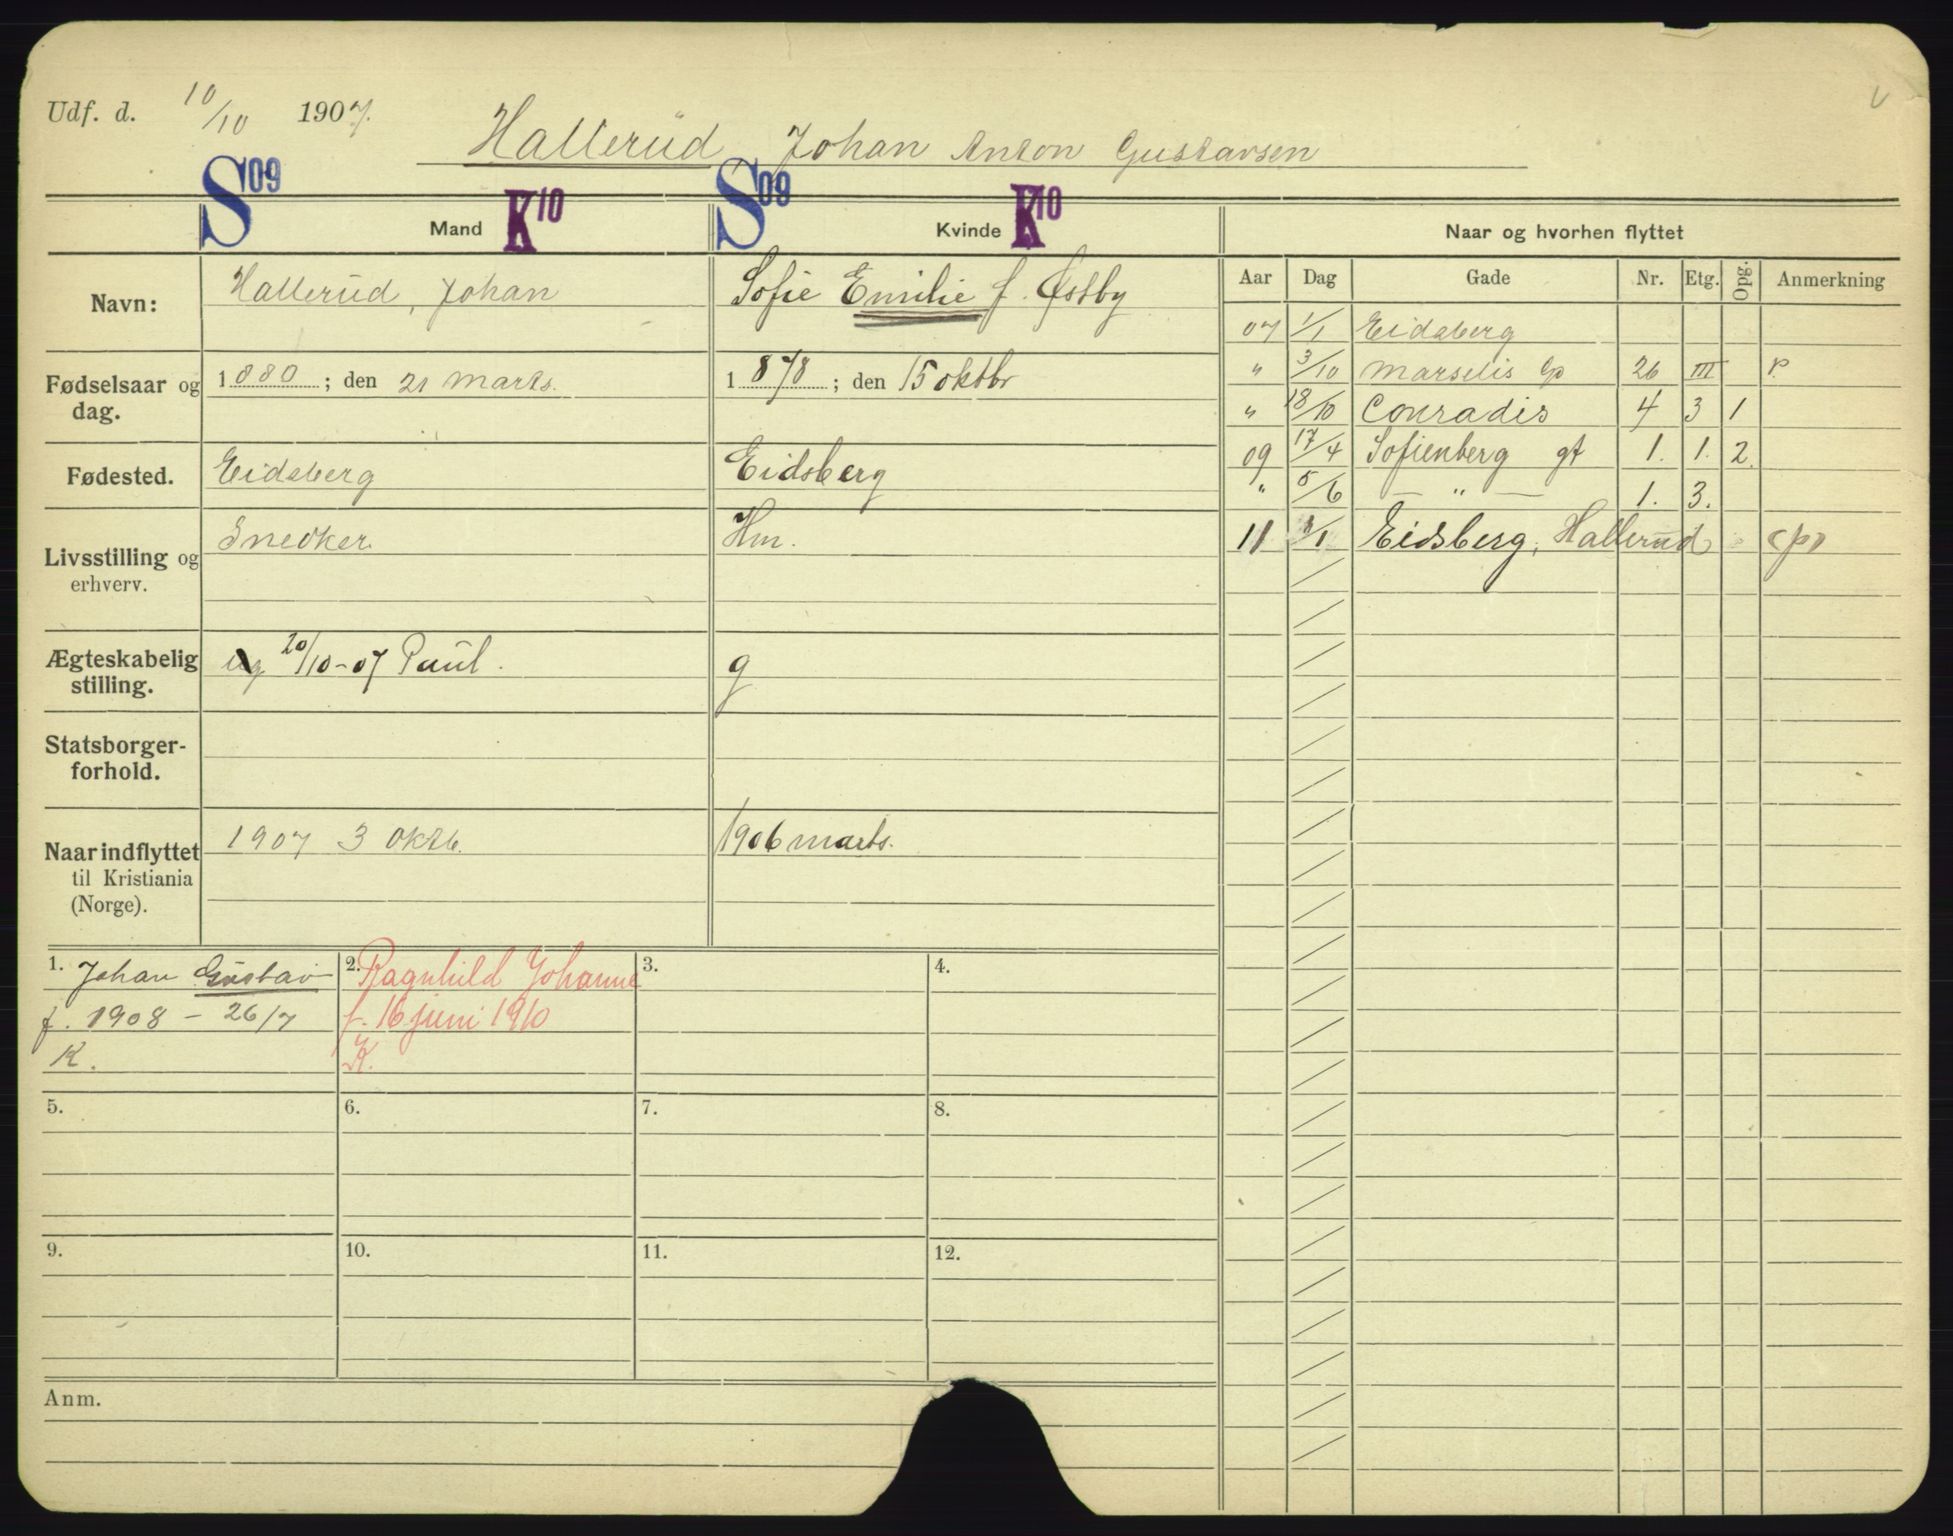 Udf. d. 10/10 1907.
Hallerud, Johan Anton Gustavsen
S09 Mand K10 S09 Kvinde K10 Naar og hvorhen flyttet
Navn: Hallerud, Johan Sofie Emilie f. Østby
Aar Dag Gade Nr. Etg. Opg. Anmerkning
07 1/1 Eidsberg
Fødselsaar og dag. 1880; den 21 marts. 1878; den 15 oktbr
" 3/10 Marselis gt 26 III P.
" 18/10 Conradis 4 3 1
09 17/4 Sofienberg gt 1. 1. 2.
Fødested. Eidsberg Eidsberg
" 5/6 — " — 1. 3.
Livsstilling og erhverv. Snedker Hm.
11 /1 Eidsberg, Hallerud
Ægteskabelig stilling. ug 20/10-07 Paul. g
Statsborgerforhold.
Naar indflyttet til Kristiania (Norge). 1907 3 oktb. 1906 marts.
1. Johan Gustav
f. 1908 - 26/7
K.
2. Ragnhild Johanne
f. 16 juni 1910
K.
3.
4.
5.
6.
7.
8.
9.
10.
11.
12.
Anm.